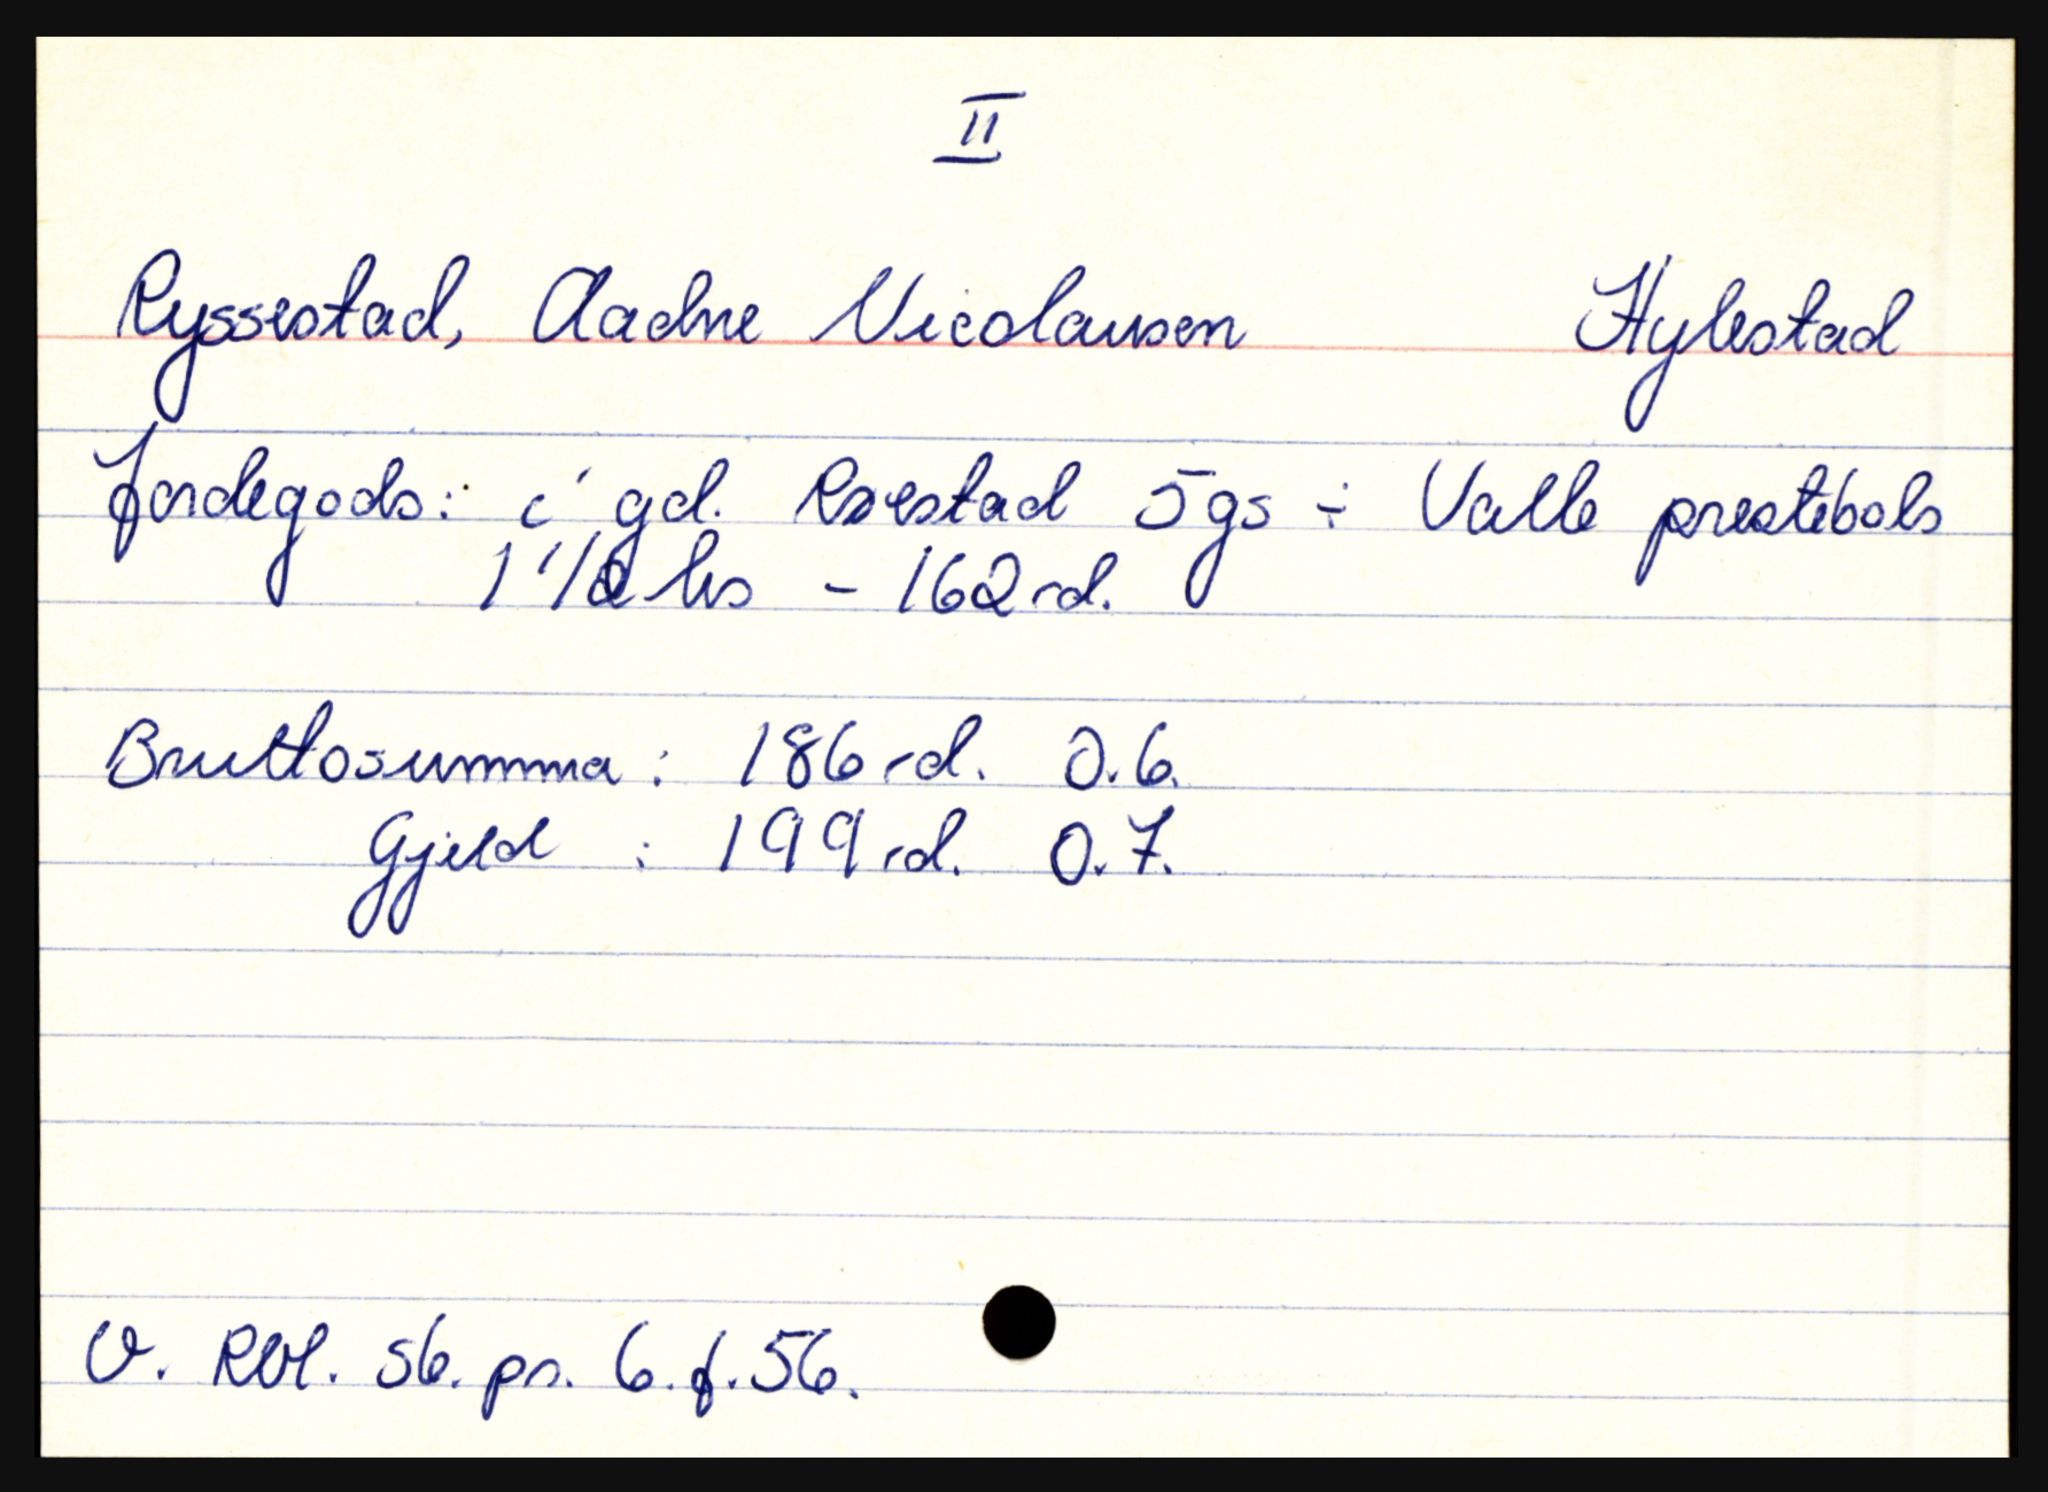 II
Ryssestad, Aadne Nicolausen Hylestad
Jordegods: i gd. Rysestad 5 gs ÷ Valle prestebols
1 1/2 hs - 162 rd.
Bruttosumma: 186 rd. 0.6.
Gjeld : 199 rd. 0.7.
V. Rbl. sk. pr. 6. f. 56.